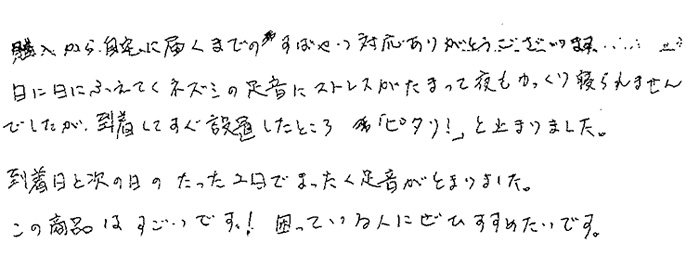 購入から自宅に届くまでのすばやい対応ありがとうございます……
日に日にふえてくネズミの足音にストレスがたまって夜もゆっくり寝られません
でしたが、到着してすぐ設置したところ「ピタリ!」と止まりました。
到着日と次の日のたった2日でまったく足音がとまりました。
この商品はすごいです!困っている人にぜひすすめたいです。